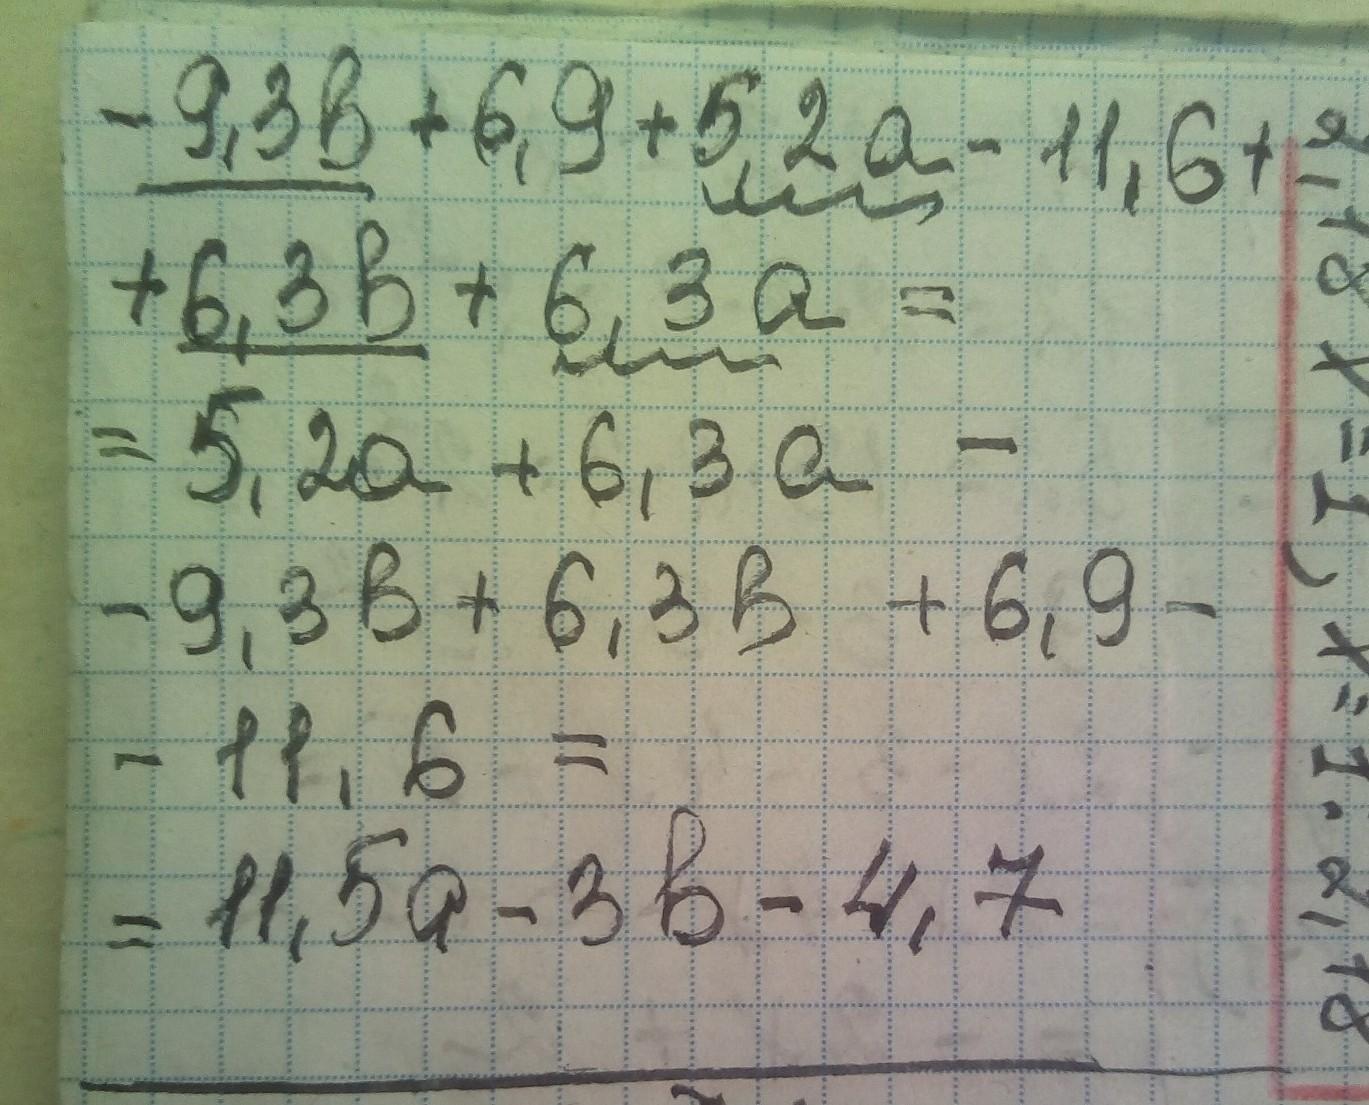 -9,3b+6,9+5,2a-11,6+
+6,3b+6,3a=
=5,2a+6,3a-
-9,3b+6,3b+6,9-
-11,6=
=11,5a-3b-4,7